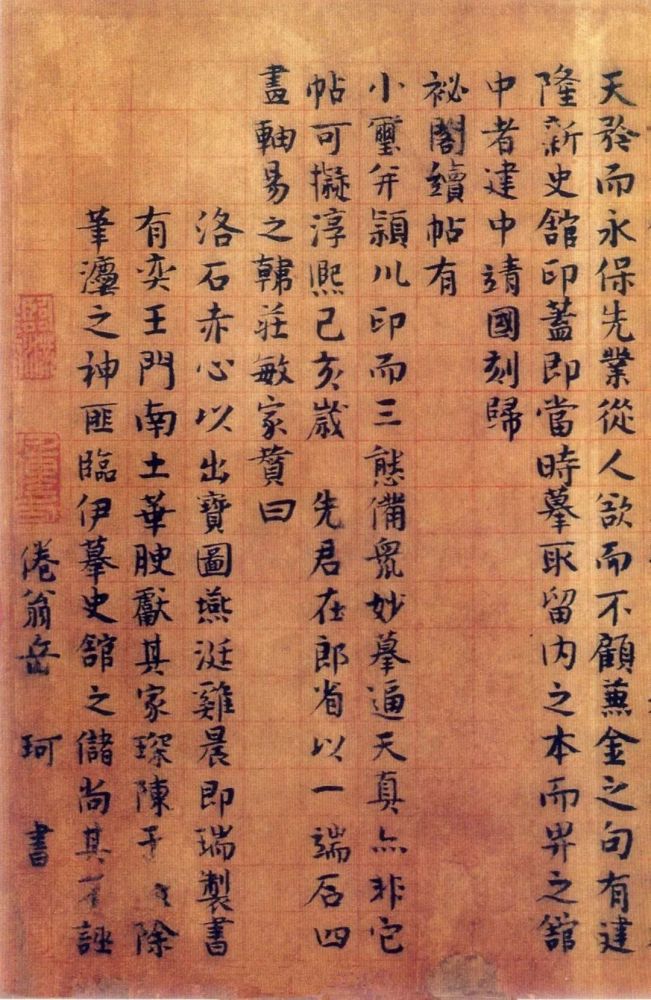 天矜而永保先業從人欲而不顧兼金之句有建
隆新史舘印蓋即當時摹取留内之本而畀之舘
中者建中靖國刻歸
祕閣續帖有
小璽并潁川印而三態備衆妙摹逼天真亦非它
帖可擬淳熙己亥歲 先君在郎省以一端石四
畫軸易之韓莊敏家贊曰
洛石赤心以出寶圖燕涎雞晨即瑞製書
有奕王門南土華腴獻其家琛陳 除
筆灋之神匪臨伊摹史舘之儲尚其不誣
倦翁岳 珂 書